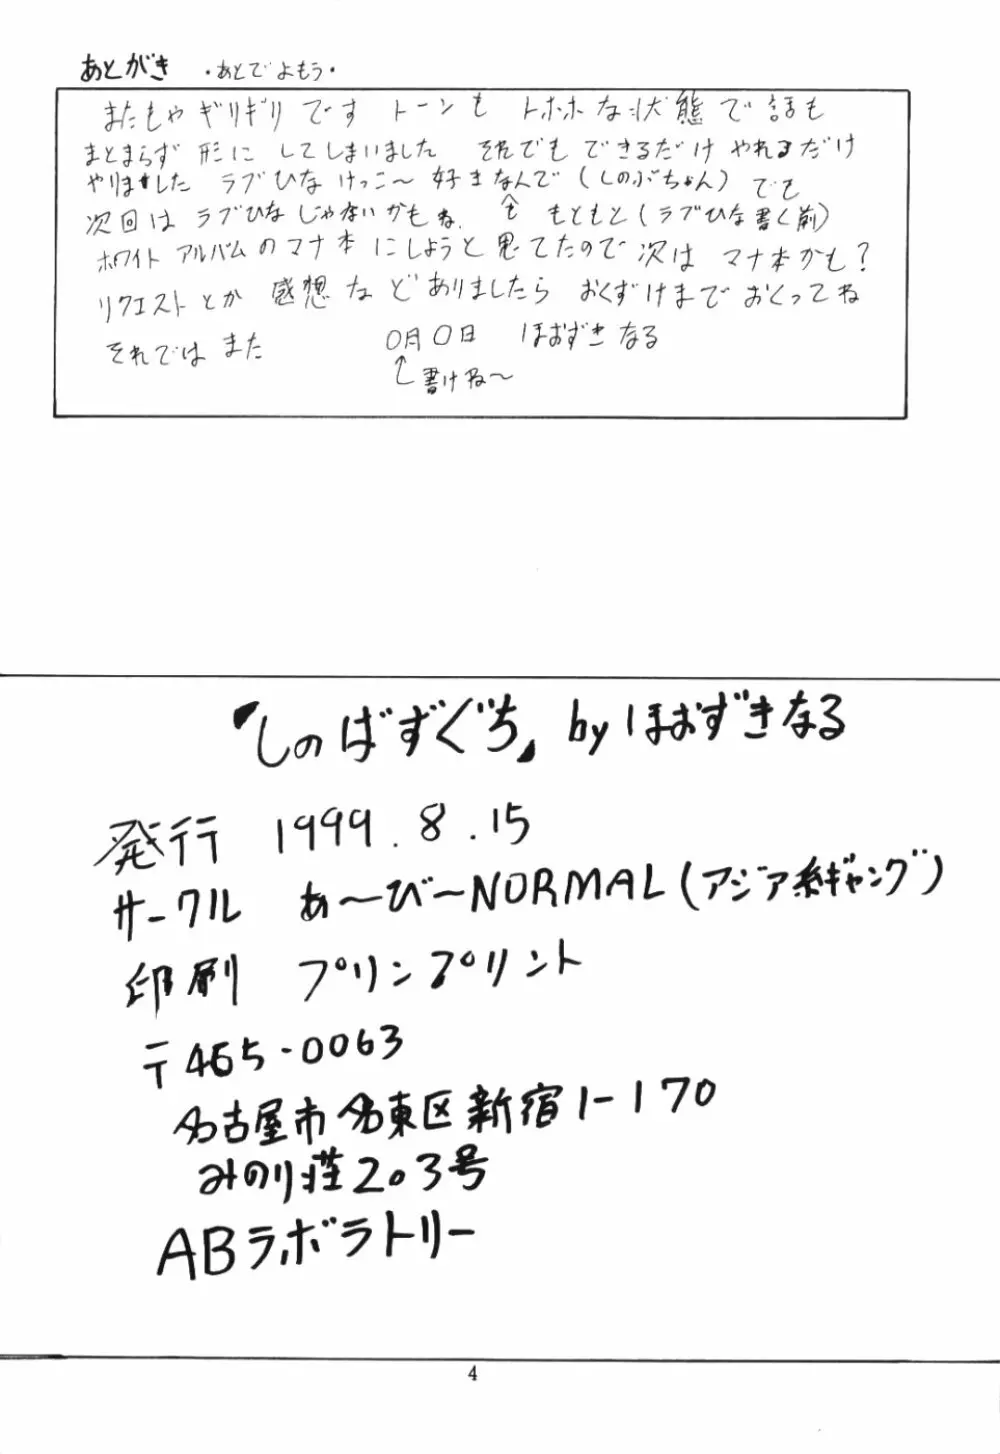 あとがき ・あとでよもう・
またもやギリギリです トーンも トホホな状態で話も
まとまらず 形に してしまいました それでも できるだけ やれるだけ
やりました ラブひな けっこ〜 好きなんで(しのぶちゃん)でも
次回は ラブひなじゃないかもね。 もともと(ラブひな書く前)
ホワイトアルバムのマナ本にしようと思てたので次は マナ本かも?
リクエストとか 感想など ありましたら おくずけまで おくってね
それでは また 0月0日 ほおずきなる
書けね〜
『しのばずぐち』 by ほおずきなる
発行 1999.8.15
サークル あ〜び〜NORMAL(アジア系ギャング)
印刷 プリンプリント
〒465-0063
名古屋市名東区新宿1-170
みのり荘203号
ABラボラトリー
4